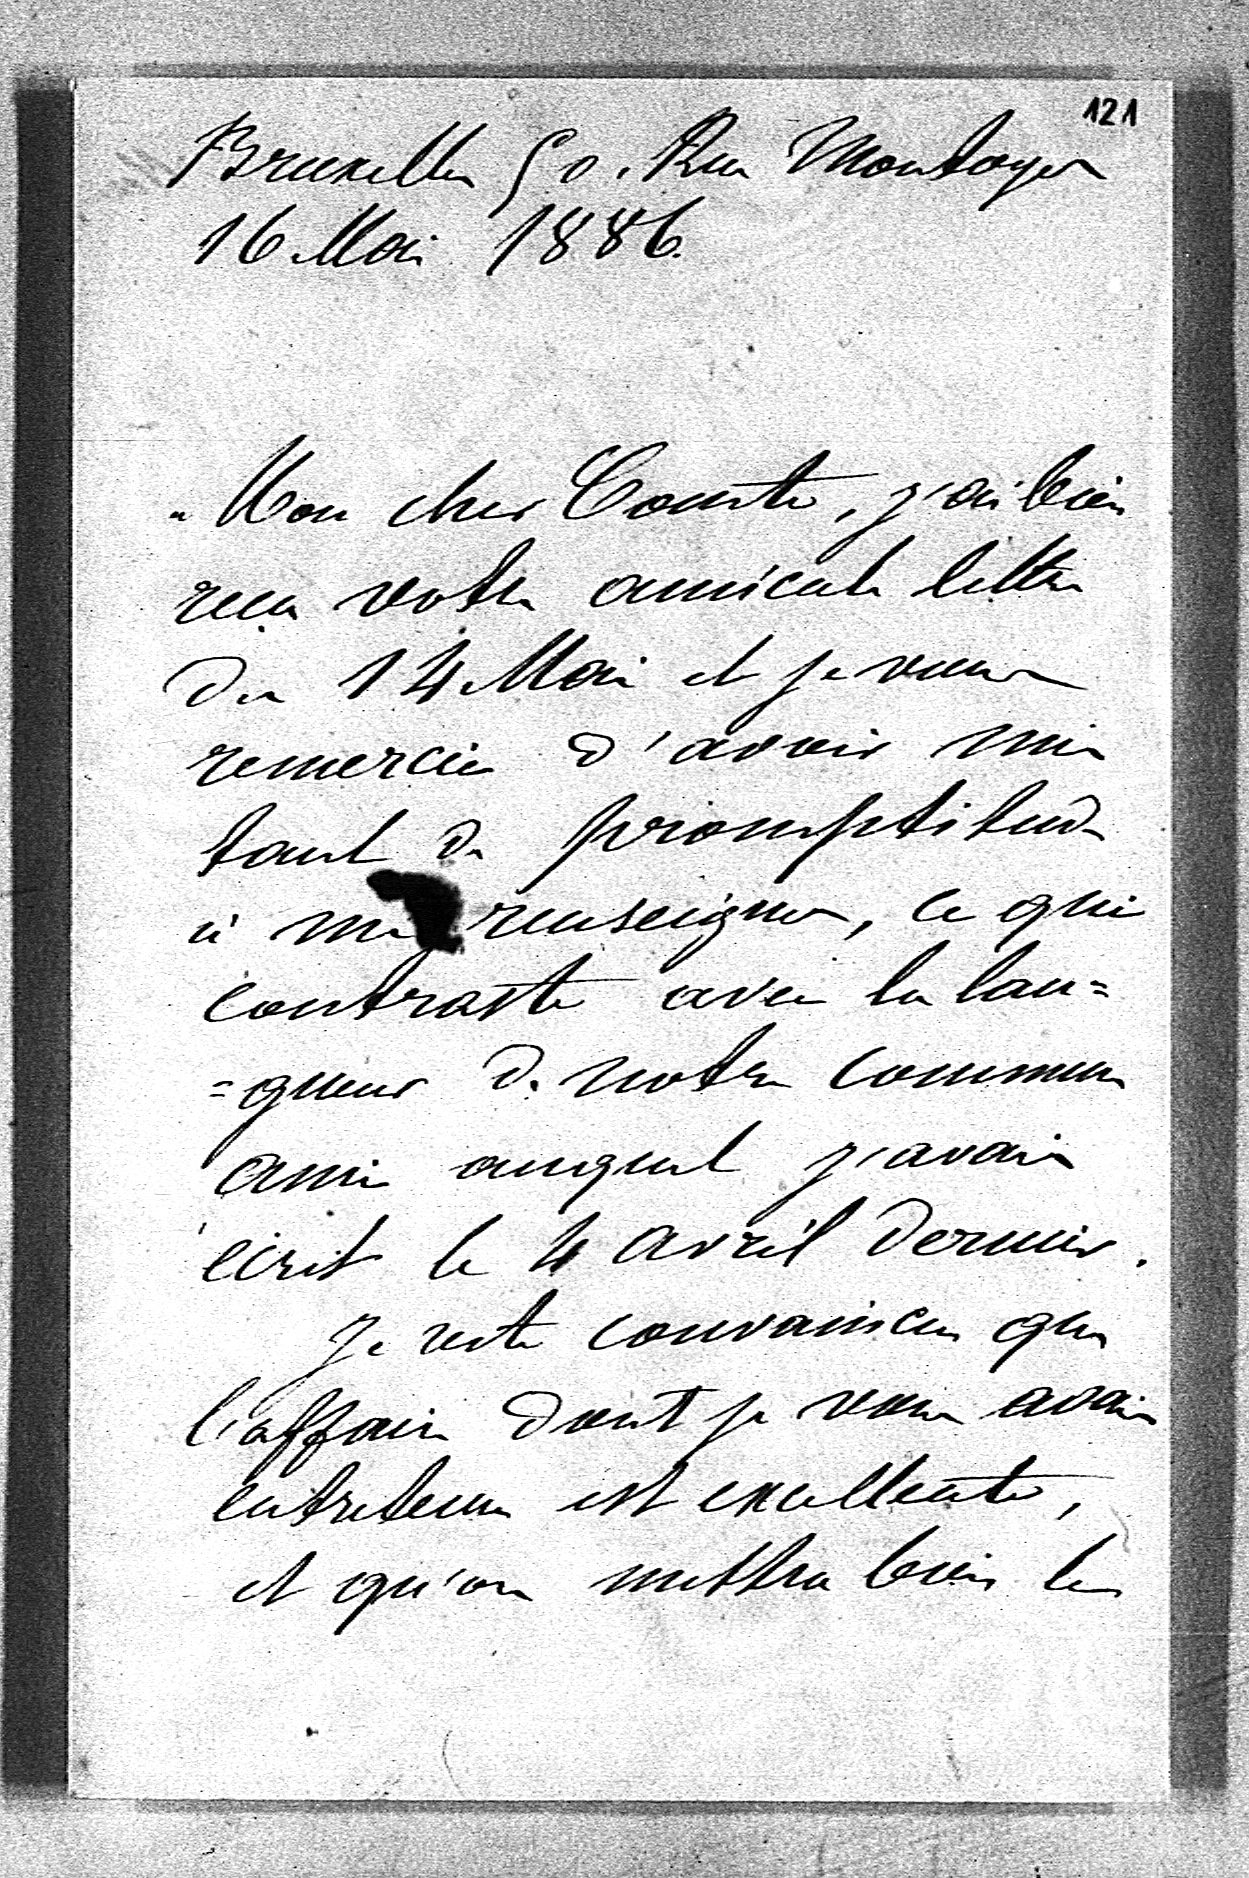 121
Bruxelles 50. Rue Montoyer
16 Mai 1886.
"Mon cher Comte, j'ai bien
reçu votre amicale lettre
du 14 Mai et je vous
remercie d'avoir mis
tant de promptitude
à me renseigner, ce qui
contraste avec la lan=
=gueur de notre commun
ami auquel j'avais
écrit le 4 avril dernier.
Je reste convaincu que
l'affaire dont je vous avais
entretenu est excellente,
et qu'on mettra bien les